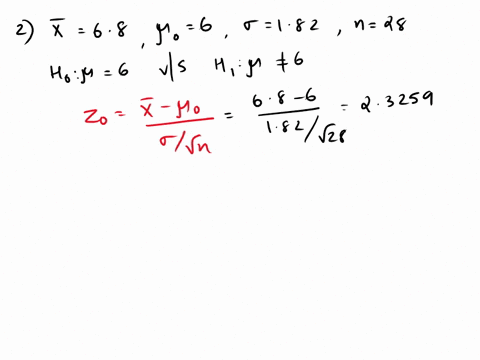 2) x̄ = 6.8 , μ₀ = 6 , σ = 1.82 , n = 28
H₀: μ = 6 v/s H₁: μ ≠ 6
z₀ = (x̄ - μ₀)/(σ/√n) = (6.8 - 6)/(1.82/√28) = 2.3259